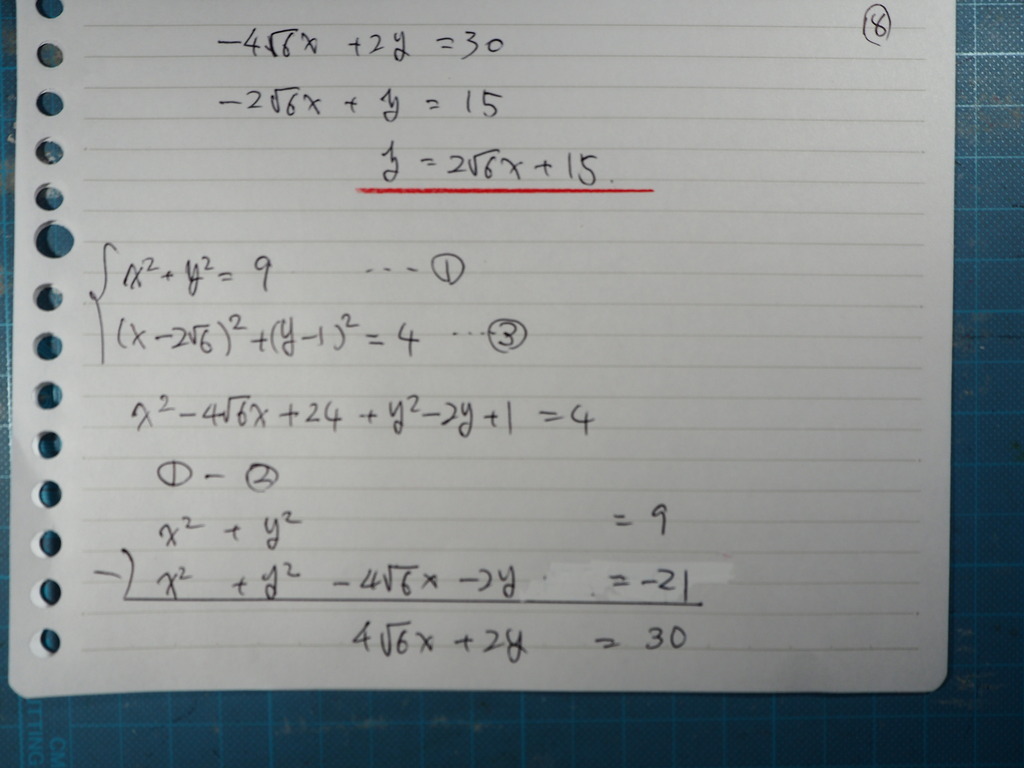 ⑧
-4√6x + 2y = 30
-2√6x + y = 15
y = 2√6x + 15.
{ x² + y² = 9 ... ①
(x - 2√6)² + (y - 1)² = 4 ... ③
x² - 4√6x + 24 + y² - 2y + 1 = 4
① - ②
x² + y² = 9
-) x² + y² - 4√6x - 2y = -21
4√6x + 2y = 30